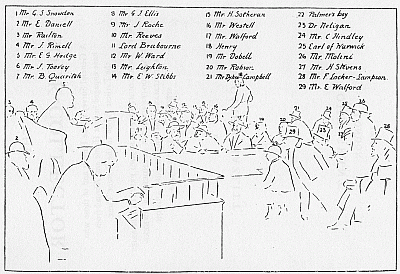 1 Mr G. J. Snowden
2 Mr E. Daniell
3 Mr Railton
4 Mr J. Rimell
5 Mr E. G. Hedge
6 Mr J. Toovey
7 Mr B. Quaritch
8 Mr G. J. Ellis
9 Mr J. Roche
10 Mr Reeves
11 Lord Brabourne
12 Mr W. Ward
13 Mr Leighton
14 Mr E. W. Stibbs
15 Mr H. Sotheran
16 Mr Westell
17 Mr Walford
18 Henry
19 Mr Dobell
20 Mr Robson
21 Mr Campbell
22 Palmer's boy
23 Dr Neligan
24 Mr C. Hindley
25 Earl of Warwick
26 Mr. Molini
27 Mr. H. Stevens
28 Mr. F. Locker-Sampson
29 Mr. E. Walford